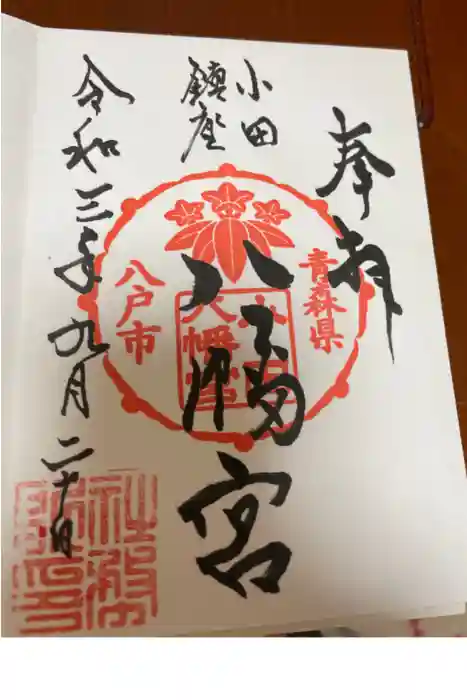 奉拝
青森県
小田
鎮座
八幡宮
小田
八幡宮
八戸市
令和三年九月二十日
社務